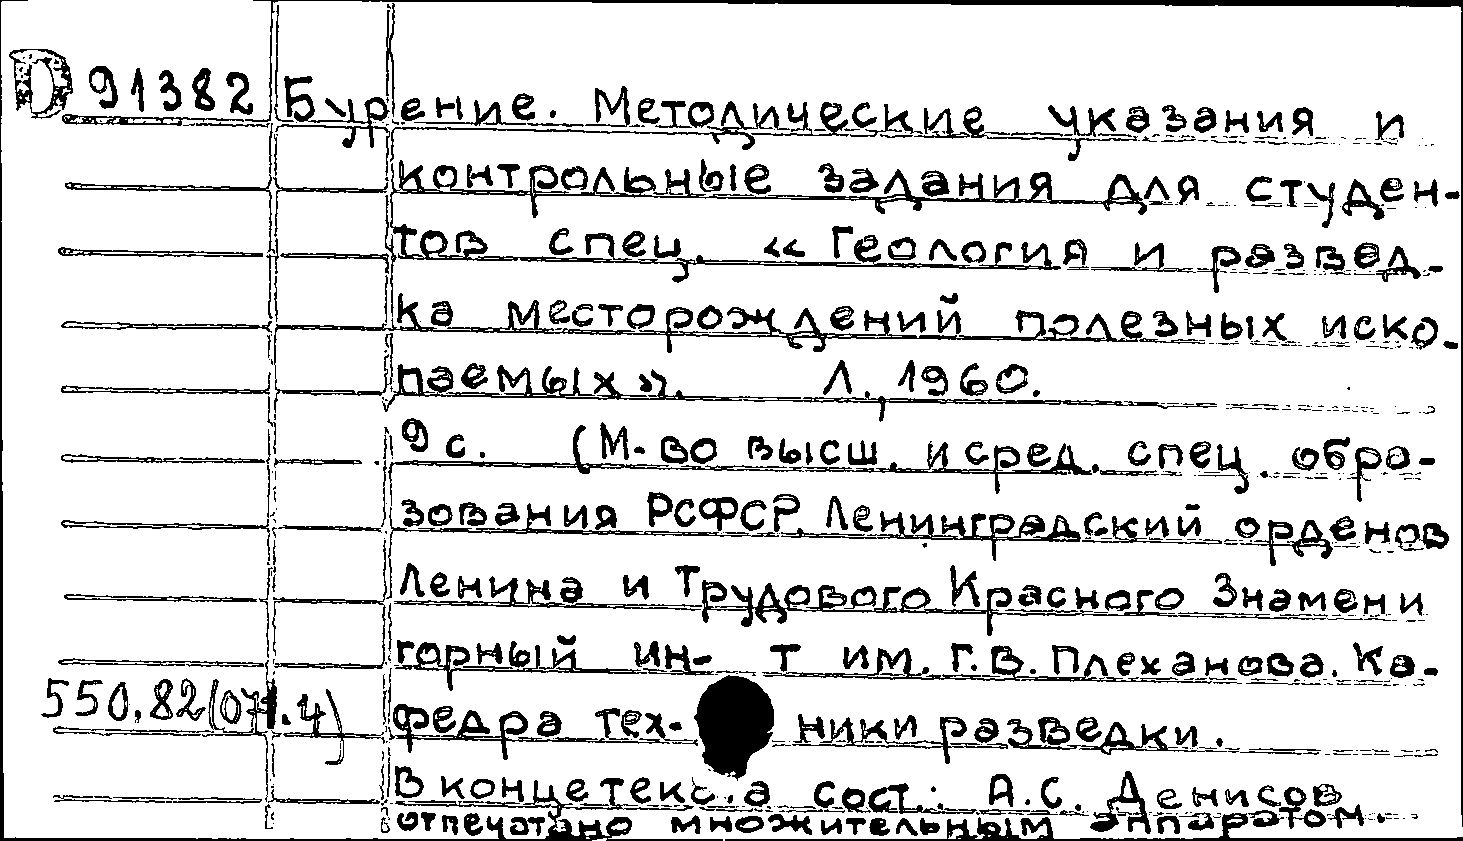 D 91382 Бурение. Методические указания и
контрольные задания для студен-
тов спец. «Геология и развед-
ка месторождений полезных иско-
паемых». Л., 1960.
9 с. (М-во высш. и сред. спец. обра-
зования РСФСР. Ленинградский орденов
Ленина и Трудового Красного Знамени
горный ин-т им. Г.В. Плеханова. Ка-
550.82(071.4) федра тех-ники разведки.
В конце текста сост.: А.С. Денисов
отпечатано множительным аппаратом.